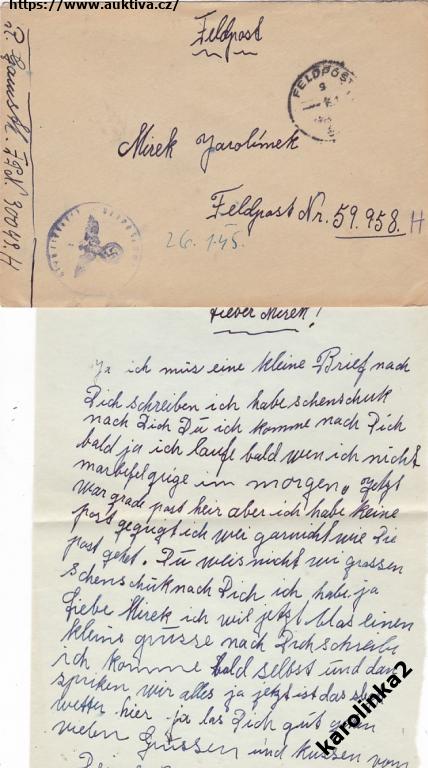 https://www.auktiva.cz/
Feldpost
FELDPOST
9
Mirek Jarolimek
Feldpost Nr. 59.958. H
26.1.45.
Lieber Mirek!
Ja ich mus eine kleine Brief nach
Dich schreiben ich habe schenschuk
nach Dich Du ich komme nach Dich
bald ja ich laufe bald wen ich nicht
im morgen, Jetzt
war grade post heir aber ich habe keine
post ich weis garnicht wie Die
post gehet. Du weis nicht wi grossen
schenschuk nach Dich ich habe ja
Liebe Mirek ich wil jetzt blas einen
kleine grüsse nach Dich schreibe
ich komme bald selbst und dan
spriken wir alles ja jetzt ist das
wetter hier. ja las Dich gut gen
vielen Grüssen und küssen von
karolinka2